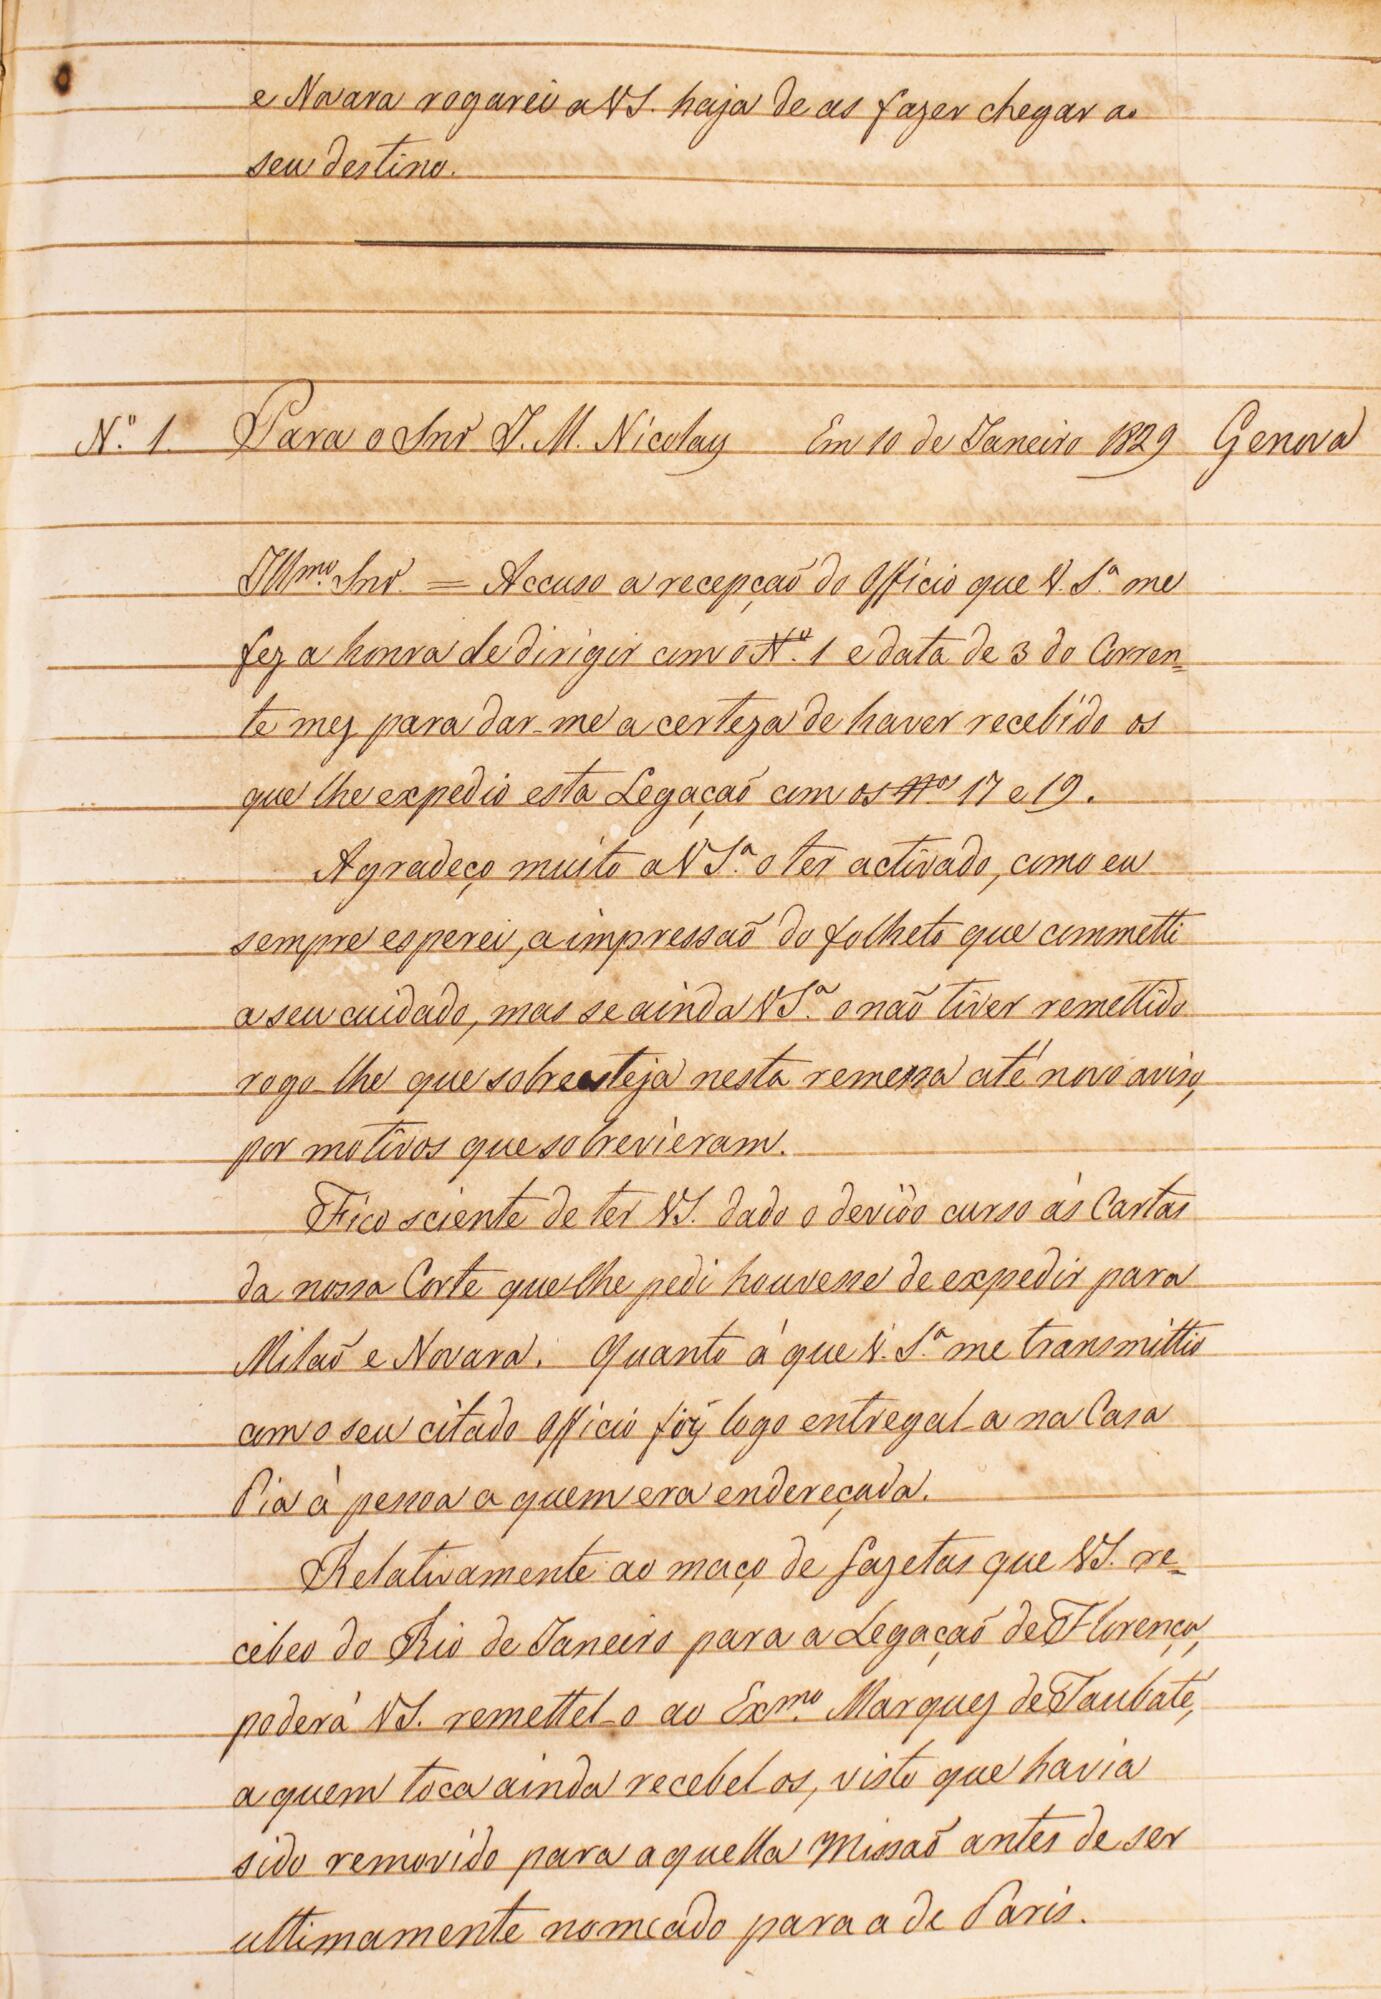 e Novara rogarei a VS. haja de as fazer chegar ao
seu destino.
N.º 1. Para o Snr J. M. Nicolay Em 10 de Janeiro 1829 Genova
Illmo. Snr. = Accuso a recepçaõ do Officio que V. S.ª me
fez a honra de dirigir com o N.º 1 e data de 3 do Corren=
te mez para dar-me a certeza de haver recebido os
que lhe expedio esta Legaçaõ com os Nos 17 e 19.
Agradeço muito a VS.ª o ter activado, como eu
sempre esperei, a impressaõ do folheto que commetti
a seu cuidado, mas se ainda VS.ª o naõ tiver remettido
rogo-lhe que sobreesteja nesta remessa até novo aviso,
por motivos que sobrevieram.
Fico sciente de ter VS. dado o devido curso ás Cartas
da nossa Corte que lhe pedi houvesse de expedir para
Milaõ e Novara. Quanto á que V. S.ª me transmittio
com o seu citado Officio foy logo entregal-a na Casa
Pia á pessoa a quem era endereçada.
Relativamente ao maço de Gazetas que VS. re=
cebeo do Rio de Janeiro para a Legaçaõ de Florença,
poderá VS. remettel-o ao Exmo. Marquez de Taubaté,
a quem toca ainda recebel-os, visto que havia
sido removido para aquella Missaõ antes de ser
ultimamente nomeado para a de Paris.